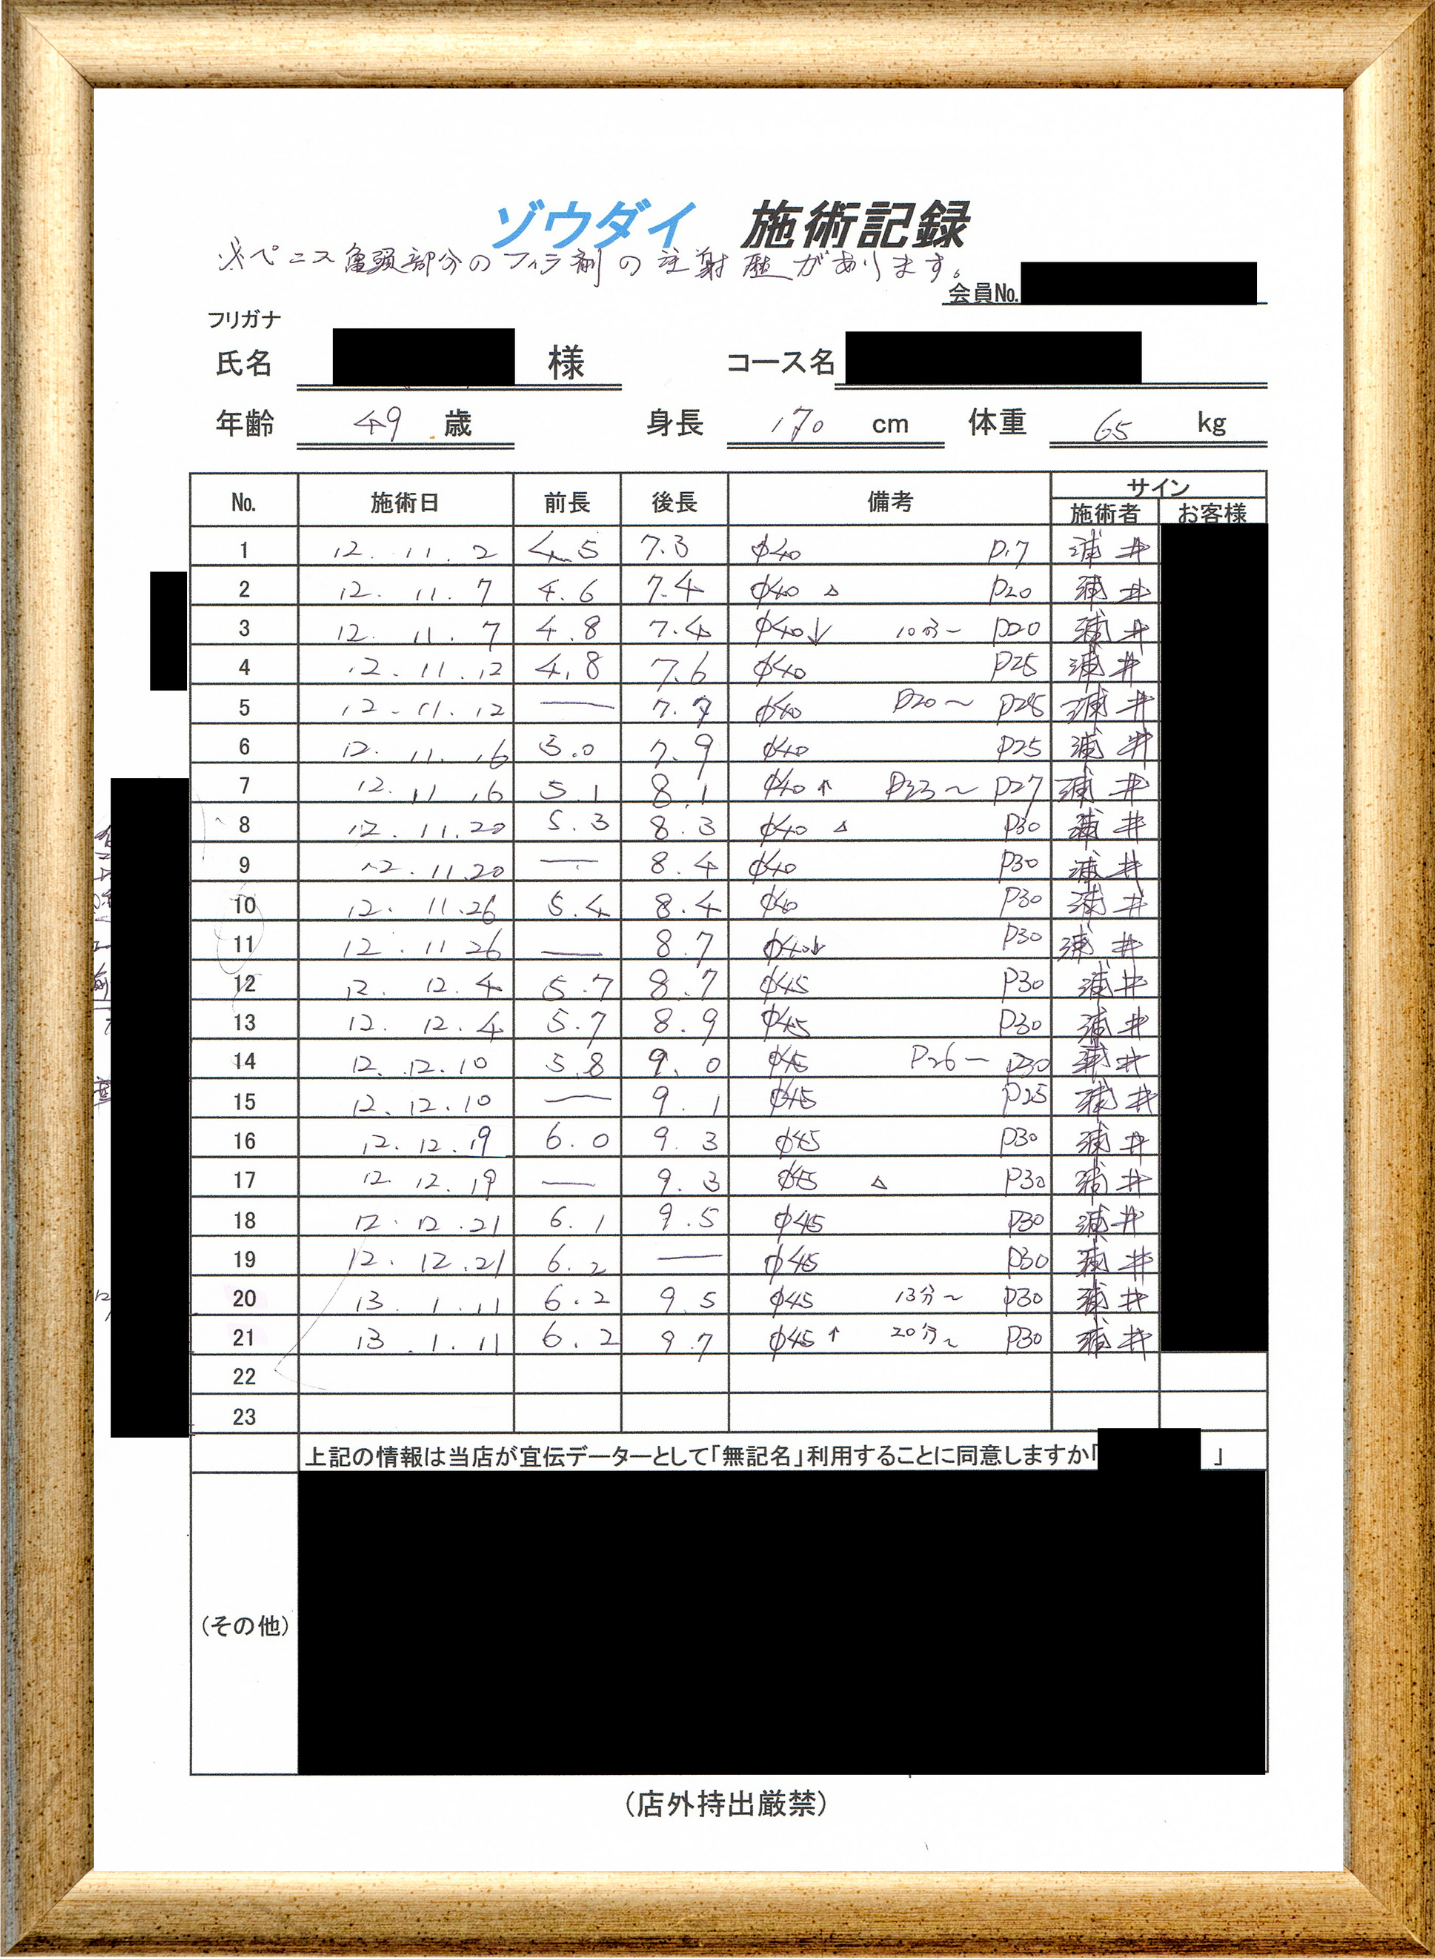 ゾウダイ 施術記録
※ペニス亀頭部分のフィラ剤の注射歴があります。
会員No.
フリガナ
氏名 様 コース名
年齢 49 歳 身長 170 cm 体重 65 kg
No. 施術日 前長 後長 備考 サイン
施術者 お客様
1 12. 11. 2 4.5 7.3 φ40 P17 浦井
2 12. 11. 7 4.6 7.4 φ40 △ P20 浦井
3 12. 11. 7 4.8 7.4 φ40↓ 10分~ P20 浦井
4 12. 11. 12 4.8 7.6 φ40 P25 浦井
5 12. 11. 12 — 7.7 φ40 P20~ P25 浦井
6 12. 11. 16 5.0 7.9 φ40 P25 浦井
7 12. 11. 16 5.1 8.1 φ40↑ P23~ P27 浦井
8 12. 11. 20 5.3 8.3 φ40 △ P30 浦井
9 12. 11. 20 — 8.4 φ40 P30 浦井
10 12. 11. 26 5.4 8.4 φ40 P30 浦井
11 12. 11. 26 — 8.7 φ40↓ P30 浦井
12 12. 12. 4 5.7 8.7 φ45 P30 浦井
13 12. 12. 4 5.7 8.9 φ45 P30 浦井
14 12. 12. 10 5.8 9.0 φ45 P26— P30 浦井
15 12. 12. 10 — 9.1 φ45 P25 浦井
16 12. 12. 19 6.0 9.3 φ45 P30 浦井
17 12. 12. 19 — 9.3 φ45 △ P30 浦井
18 12. 12. 21 6.1 9.5 φ45 P30 浦井
19 12. 12. 21 6.2 — φ45 P30 浦井
20 13. 1. 11 6.2 9.5 φ45 13分~ P30 浦井
21 13. 1. 11 6.2 9.7 φ45↑ 20分~ P30 浦井
22
23
上記の情報は当店が宣伝データーとして「無記名」利用することに同意しますか「 」
(その他)
(店外持出厳禁)